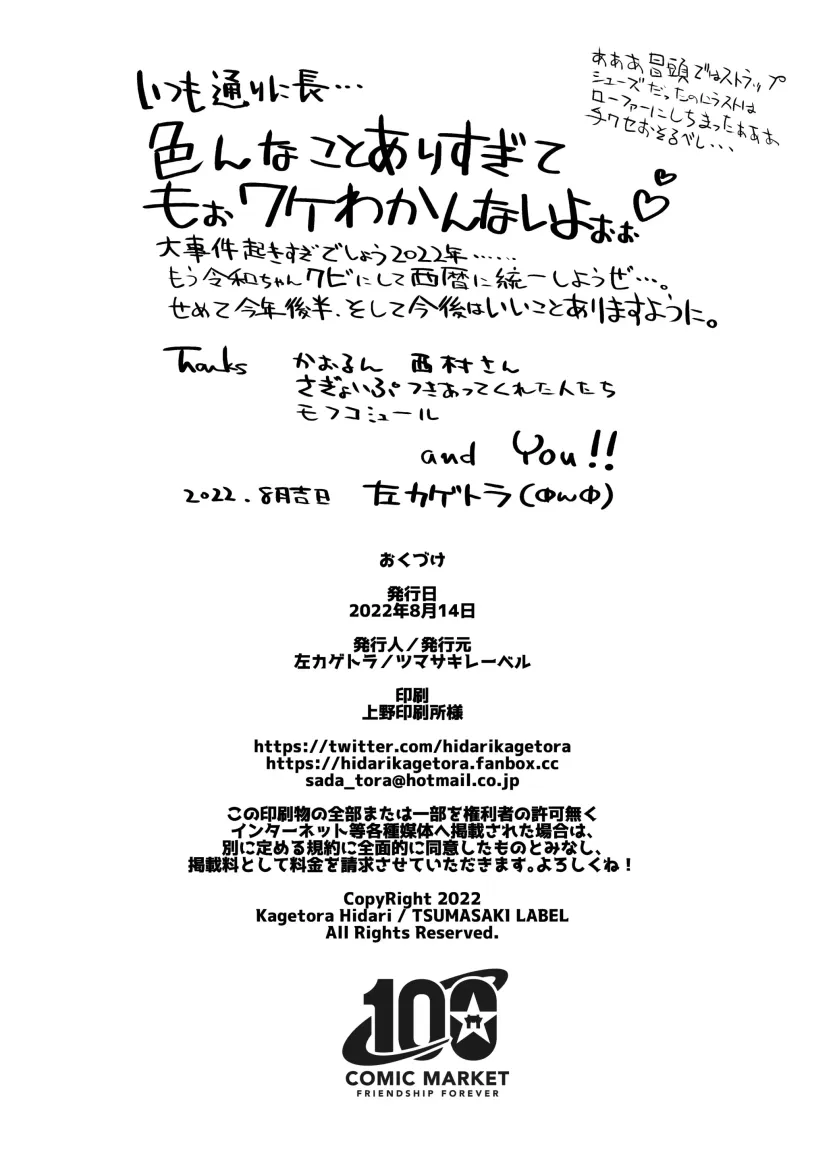 いつも通りに長…
あああ冒頭ではストラップ
シューズだったのにラストは
ローファーにしちまったぁぁぁ
手クセおそるべし…
色んなことありすぎて
もぉワケわかんないよぉぉ♡♡
大事件起きすぎでしょう2022年……
もう令和ちゃんクビにして西暦に統一しようぜ…。
せめて今年後半、そして今後はいいことありますように。
Thanks かおるん 西村さん
さぎょいぷつきあってくれた人たち
モフコミュール
and You!!
2022.8月吉日 左カゲトラ(ФωФ)
おくづけ
発行日
2022年8月14日
発行人/発行元
左カゲトラ/ツマサキレーベル
印刷
上野印刷所様
https://twitter.com/hidarikagetora
https://hidarikagetora.fanbox.cc
sada_tora@hotmail.co.jp
この印刷物の全部または一部を権利者の許可無く
インターネット等各種媒体へ掲載された場合は、
別に定める規約に全面的に同意したものとみなし、
掲載料として料金を請求させていただきます。よろしくね!
CopyRight 2022
Kagetora Hidari / TSUMASAKI LABEL
All Rights Reserved.
100
COMIC MARKET
FRIENDSHIP FOREVER